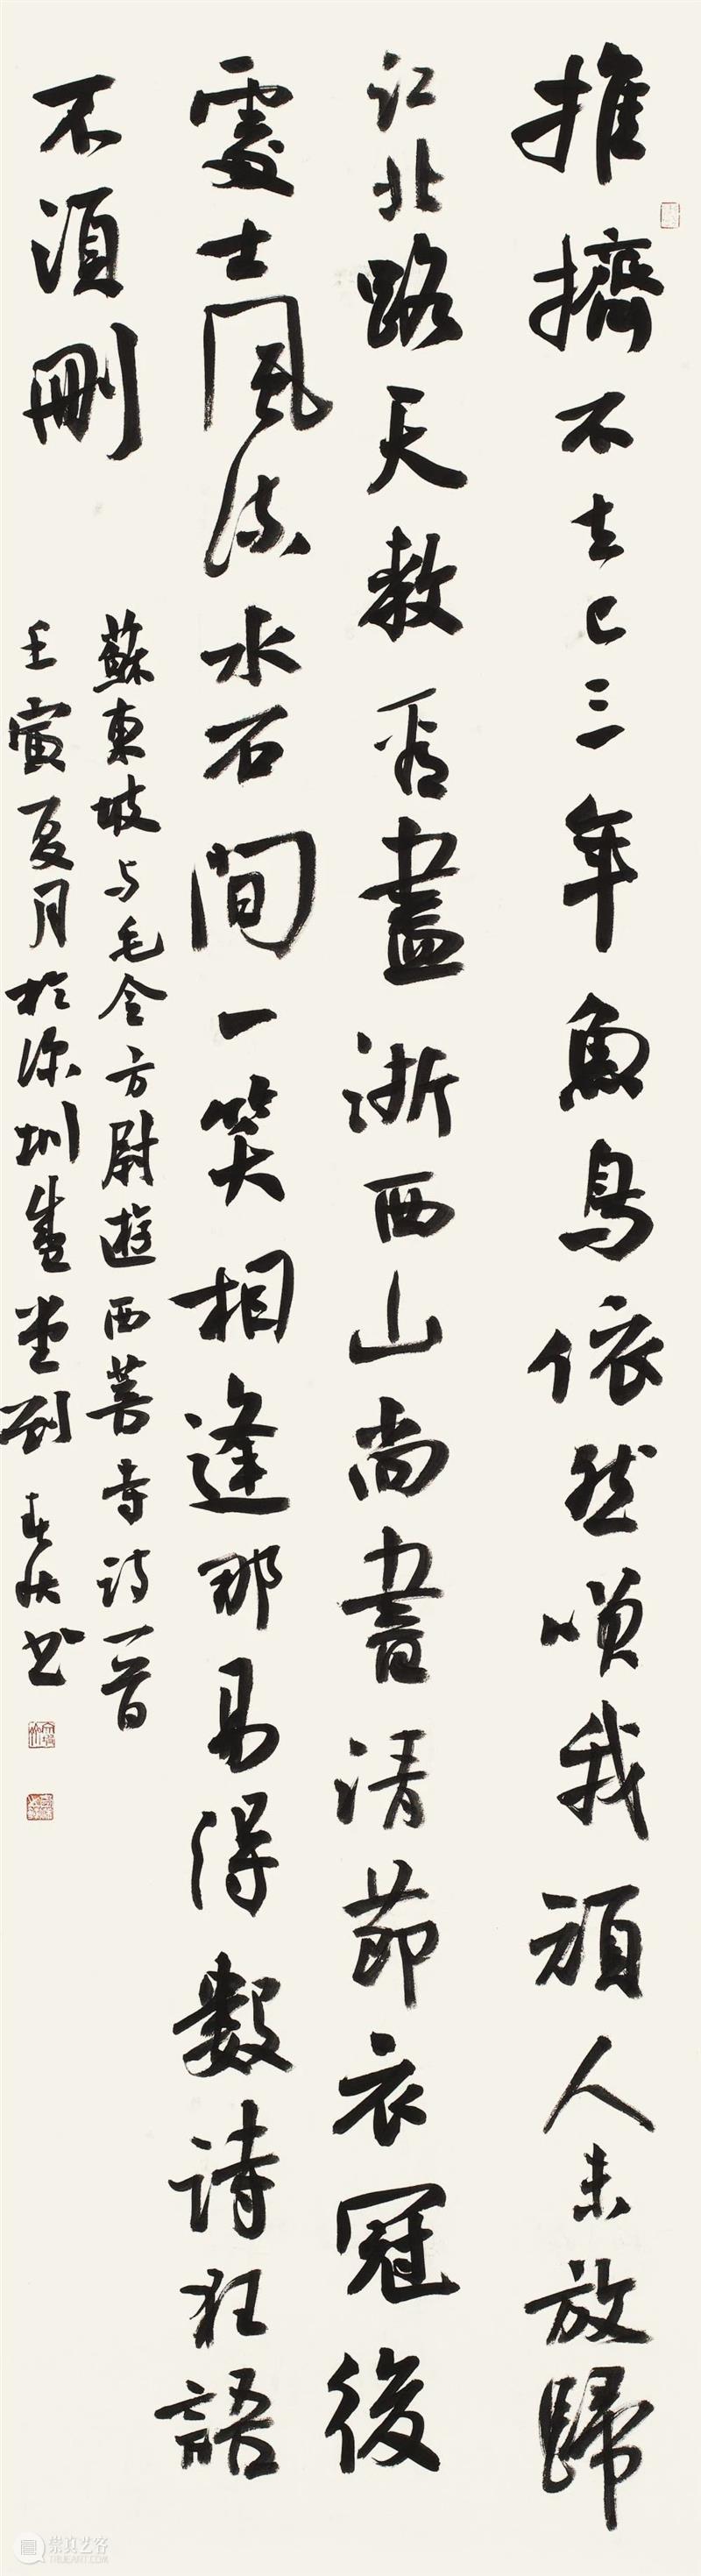 推擠不去已三年魚鳥依然咲我頑人未放歸
江北路天教看盡浙西山尚書清節衣冠後
處士風流水石間一笑相逢那易得數詩狂語
不須刪
蘇東坡与毛令方尉遊西菩寺詩一首
壬寅夏月於深圳堂劉春书
崇真艺客
TRUEART.COM